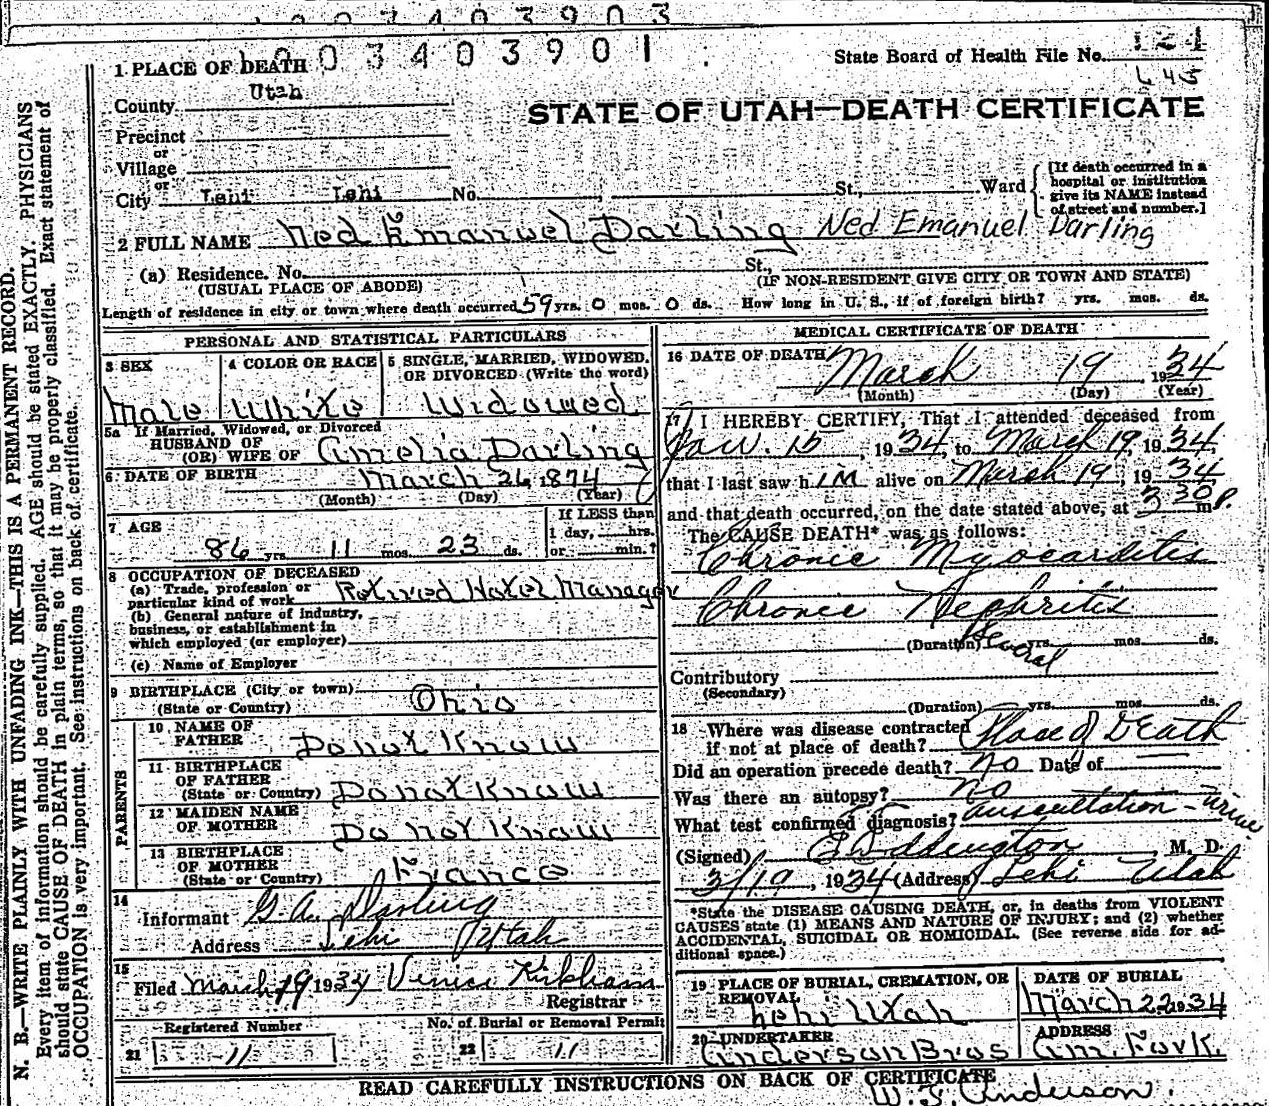 1003403903
1003403901
State Board of Health File No. 124
1 PLACE OF DEATH
County Utah
STATE OF UTAH—DEATH CERTIFICATE
Precinct
or
Village
or
City Lehi Lehi No. St., Ward
[If death occurred in a
hospital or institution
give its NAME instead
of street and number.]
2 FULL NAME Ned Emanuel Darling Ned Emanuel Darling
(a) Residence. No. St.,
(USUAL PLACE OF ABODE) (IF NON-RESIDENT GIVE CITY OR TOWN AND STATE)
Length of residence in city or town where death occurred 59 yrs. 0 mos. 0 ds. How long in U. S., if of foreign birth? yrs. mos. ds.
PERSONAL AND STATISTICAL PARTICULARS
3 SEX
Male
4 COLOR OR RACE
White
5 SINGLE, MARRIED, WIDOWED,
OR DIVORCED (Write the word)
Widowed
5a If Married, Widowed, or Divorced
HUSBAND OF
(OR) WIFE OF Amelia Darling
6 DATE OF BIRTH March 26 1874
(Month) (Day) (Year)
7 AGE
86 yrs. 11 mos. 23 ds.
If LESS than
1 day, hrs.
or min.?
8 OCCUPATION OF DECEASED
(a) Trade, profession or
particular kind of work Retired Hotel Manager
(b) General nature of industry,
business, or establishment in
which employed (or employer)
(c) Name of Employer
9 BIRTHPLACE (City or town)
(State or Country) Ohio
PARENTS
10 NAME OF
FATHER Do not Know
11 BIRTHPLACE
OF FATHER
(State or Country) Do not Know
12 MAIDEN NAME
OF MOTHER Do not Know
13 BIRTHPLACE
OF MOTHER
(State or Country) France
14
Informant G. A. Darling
Address Lehi Utah
15
Filed March 19 1934 Venice Kirkham
Registrar
Registered Number
21 11
No. of Burial or Removal Permit
22 11
MEDICAL CERTIFICATE OF DEATH
16 DATE OF DEATH March 19, 1934
(Month) (Day) (Year)
17 I HEREBY CERTIFY, That I attended deceased from
Jan. 15, 1934, to March 19, 1934,
that I last saw him alive on March 19, 1934
and that death occurred, on the date stated above, at 3 30 P. m.
The CAUSE DEATH* was as follows:
Chronic Myocarditis
Chronic Nephritis
(Duration) Several yrs. mos. ds.
Contributory
(Secondary)
(Duration) yrs. mos. ds.
18 Where was disease contracted
if not at place of death? Place of Death
Did an operation precede death? No Date of
Was there an autopsy? No
What test confirmed diagnosis? Auscultation - Urine
(Signed) Eddington, M. D.
3/19, 1934 (Address) Lehi Utah
*State the DISEASE CAUSING DEATH, or, in deaths from VIOLENT
CAUSES state (1) MEANS AND NATURE OF INJURY; and (2) whether
ACCIDENTAL, SUICIDAL OR HOMICIDAL. (See reverse side for ad-
ditional space.)
19 PLACE OF BURIAL, CREMATION, OR
REMOVAL
Lehi Utah
DATE OF BURIAL
March 22 1934
20 UNDERTAKER
Anderson Bros
ADDRESS
Am. Fork.
READ CAREFULLY INSTRUCTIONS ON BACK OF CERTIFICATE
Anderson.
N. B.—WRITE PLAINLY WITH UNFADING INK—THIS IS A PERMANENT RECORD.
Every item of information should be carefully supplied. AGE should be stated EXACTLY. PHYSICIANS
should state CAUSE OF DEATH in plain terms, so that it may be properly classified. Exact statement of
OCCUPATION is very important. See instructions on back of certificate.